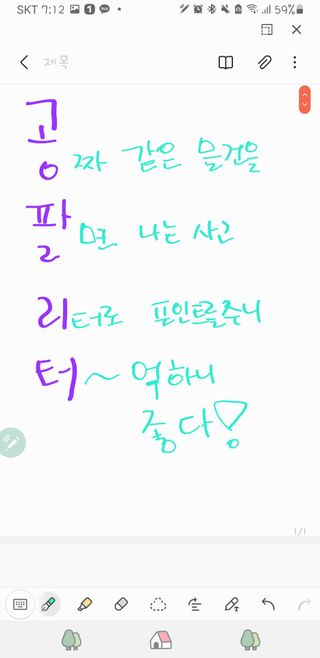 SKT 7:12 1 59%
제목
공짜 같은 물건을
팔면 나는 사고
리터로 포인트를주니
터~억하니
좋다!
1/1